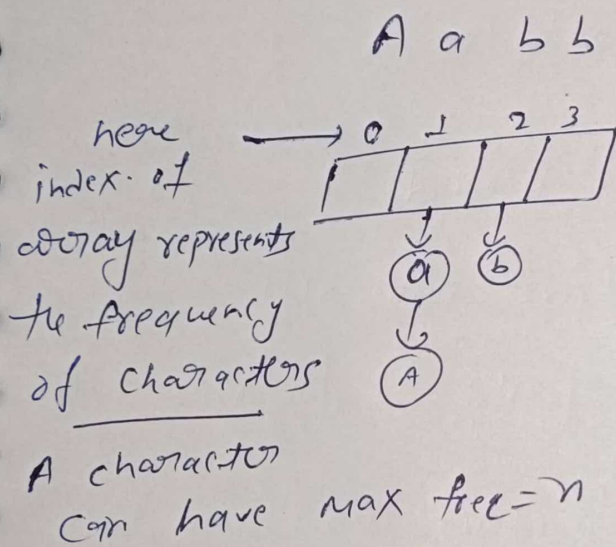 A a b b
here → 0 1 2 3
index of
array represents
the frequency
of characters
a b
A
A character
can have max freq = n